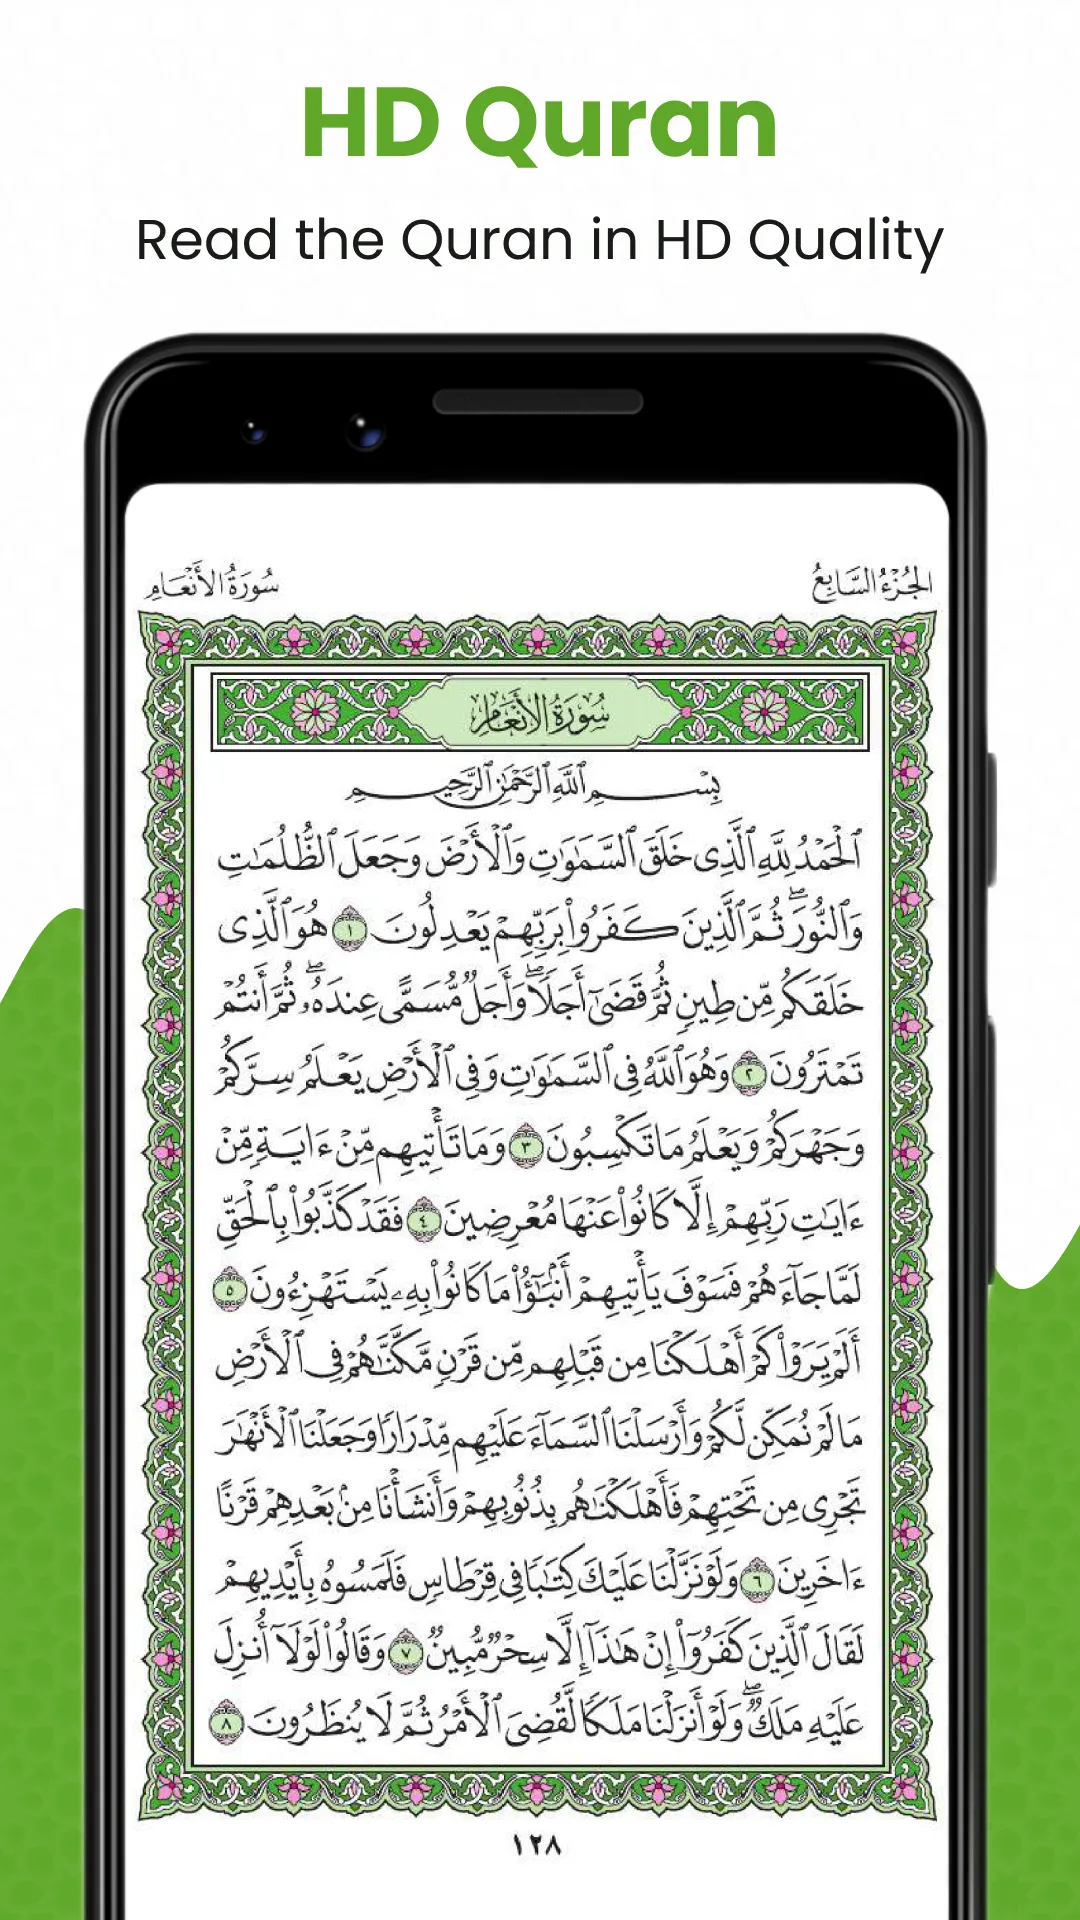 HD Quran
Read the Quran in HD Quality
الجُزْءُ السَّابِعُ
سُورَةُ الأَنْعَامِ
سُورَةُ الأَنْعَامِ
بِسْمِ ٱللَّهِ ٱلرَّحْمَٰنِ ٱلرَّحِيمِ
ٱلْحَمْدُ لِلَّهِ ٱلَّذِى خَلَقَ ٱلسَّمَٰوَٰتِ وَٱلْأَرْضَ وَجَعَلَ ٱلظُّلُمَٰتِ
وَٱلنُّورَۖ ثُمَّ ٱلَّذِينَ كَفَرُوا۟ بِرَبِّهِمْ يَعْدِلُونَ ١ هُوَ ٱلَّذِى
خَلَقَكُم مِّن طِينٍ ثُمَّ قَضَىٰٓ أَجَلًاۖ وَأَجَلٌ مُّسَمًّى عِندَهُۥۖ ثُمَّ أَنتُمْ
تَمْتَرُونَ ٢ وَهُوَ ٱللَّهُ فِى ٱلسَّمَٰوَٰتِ وَفِى ٱلْأَرْضِ يَعْلَمُ سِرَّكُمْ
وَجَهْرَكُمْ وَيَعْلَمُ مَا تَكْسِبُونَ ٣ وَمَا تَأْتِيهِم مِّنْ ءَايَةٍ مِّنْ
ءَايَٰتِ رَبِّهِمْ إِلَّا كَانُوا۟ عَنْهَا مُعْرِضِينَ ٤ فَقَدْ كَذَّبُوا۟ بِٱلْحَقِّ
لَمَّا جَآءَهُمْ فَسَوْفَ يَأْتِيهِمْ أَنۢبَٰٓؤُا۟ مَا كَانُوا۟ بِهِۦ يَسْتَهْزِءُونَ ٥
أَلَمْ يَرَوْا۟ كَمْ أَهْلَكْنَا مِن قَبْلِهِم مِّن قَرْنٍ مَّكَّنَّٰهُمْ فِى ٱلْأَرْضِ
مَا لَمْ نُمَكِّن لَّكُمْ وَأَرْسَلْنَا ٱلسَّمَآءَ عَلَيْهِم مِّدْرَارًا وَجَعَلْنَا ٱلْأَنْهَٰرَ
تَجْرِى مِن تَحْتِهِمْ فَأَهْلَكْنَٰهُم بِذُنُوبِهِمْ وَأَنشَأْنَا مِنۢ بَعْدِهِمْ قَرْنًا
ءَاخَرِينَ ٦ وَلَوْ نَزَّلْنَا عَلَيْكَ كِتَٰبًا فِى قِرْطَاسٍ فَلَمَسُوهُ بِأَيْدِيهِمْ
لَقَالَ ٱلَّذِينَ كَفَرُوٓا۟ إِنْ هَٰذَآ إِلَّا سِحْرٌ مُّبِينٌ ٧ وَقَالُوا۟ لَوْلَآ أُنزِلَ
عَلَيْهِ مَلَكٌۖ وَلَوْ أَنزَلْنَا مَلَكًا لَّقُضِىَ ٱلْأَمْرُ ثُمَّ لَا يُنظَرُونَ ٨
١٢٨